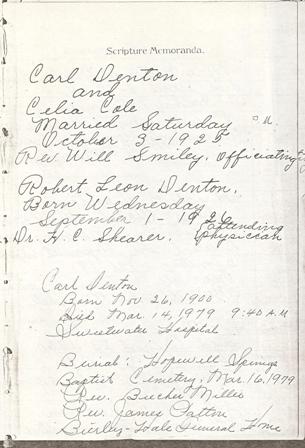 Scripture Memoranda.
Carl Denton
and
Celia Cole
Married Saturday
October 3 - 1925
Rev Will Smiley, officiating
Robert Leon Denton,
Born Wednesday
September 1 - 1926
Dr. H. C. Shearer, attending
physiccan
Carl Denton
Born Nov 26, 1900
Died Mar. 14, 1979 9:40 A.M
Sweetwater Hospital
Burial: Hopewell Springs
Baptist Cemetery, Mar. 16, 1979
Rev. Beecher Miller
Rev. James Patton
Bierly-Hale Funeral Home